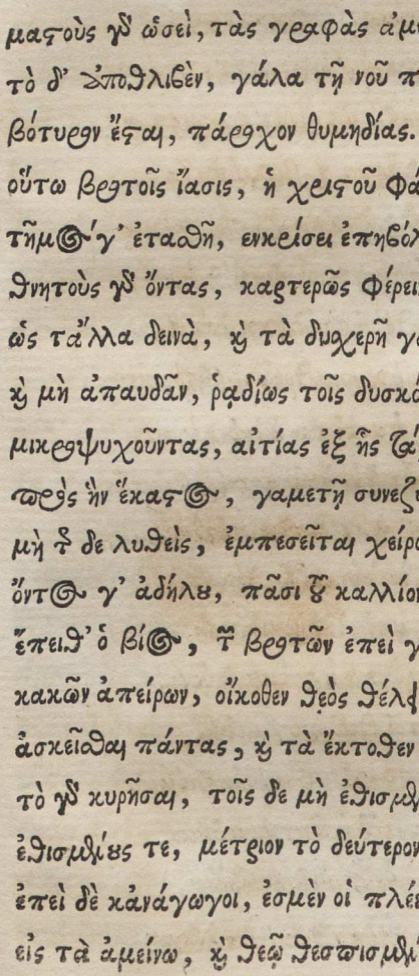 ματοὺς γδ ὡσεὶ, τὰς γραφὰς ἀμ
τὸ δ' ἀποθλιβὲν, γάλα τῇ νοῦ π
βότυρον ἔσται, πάροχον θυμηδίας.
οὕτω βροτοῖς ἴασις, ἡ χριστοῦ φά
τῆμος γ' ἐτασθῆ, ενκρίσει ἐπηβόλ
θνητοὺς γδ ὄντας, καρτερῶς φέρει
ὡς τἄλλα δεινὰ, καὶ τὰ δυσχερῆ γ
καὶ μὴ ἀπαυδᾶν, ῥᾳδίως τοῖς δυσκό
μικροψυχοῦντας, αἰτίας ἐξ ἧς
πρὸς ἣν ἕκαστος, γαμετῇ συνεζ
μὴ τ δε λυθεὶς, ἐμπεσεῖται χείρο
ὄντος γ' ἀδήλου, πᾶσι τοῦ καλλίον
ἔπειθ' ὁ βίος, τῶν βροτῶν ἐπεὶ γ
κακῶν ἀπείρων, οἴκοθεν θεὸς θέλει
ἀσκεῖσθαι πάντας, καὶ τὰ ἔκτοθεν
τὸ γδ κυρῆσαι, τοῖς δε μὴ ἐθισμέν
ἐθισμένους τε, μέτριον τὸ δεύτερον
ἐπεὶ δὲ κἀνάγωγοι, ἐσμὲν οἱ πλέ
εἰς τὰ ἀμείνω, καὶ θεῷ θεσπισμέν